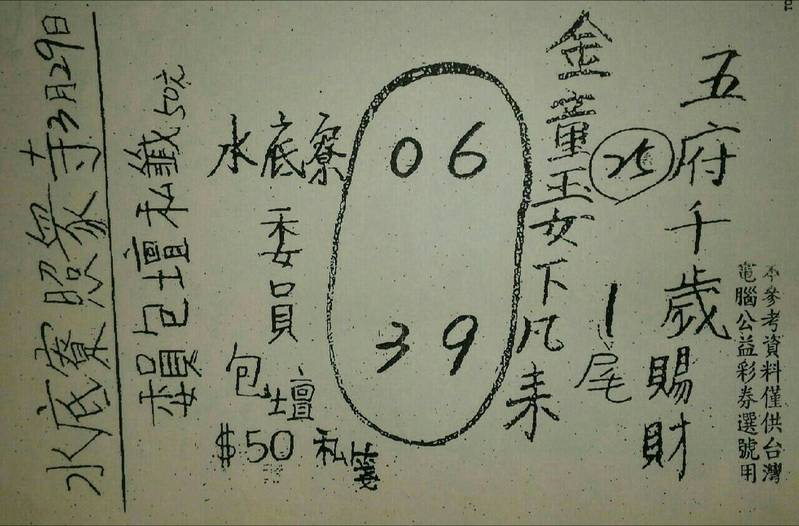 本參考資料僅供台灣
電腦公益彩券選號用
五府千歲賜財
25
1尾
金童玉女下凡來
06
39
水底寮
委員
包壇
$50 私箋
委員包壇私籤50元
水底寮照眾寺3月29日